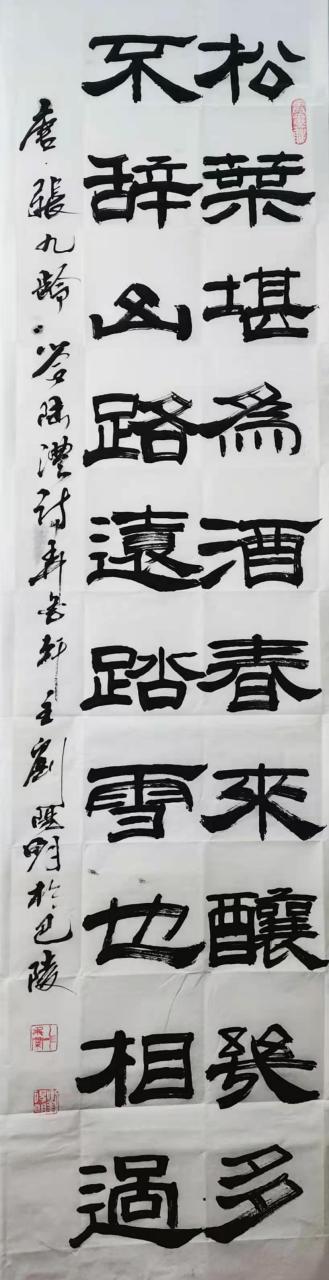 松葉堪為酒春來釀幾多
不辭山路遠踏雪也相過
唐·張九齡·答陸澧詩 軒主劉 明於巴陵